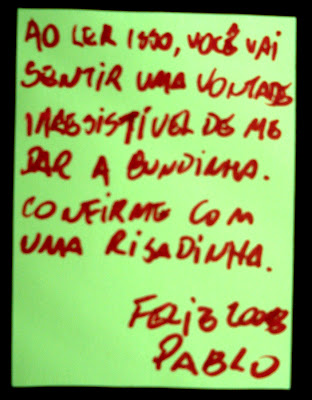 AO LER ISSO, VOCÊ VAI
SENTIR UMA VONTADE
IRRESISTÍVEL DE ME
DAR A BUNDINHA.
CONFIRME COM
UMA RISADINHA.
FELIZ 2008
PABLO